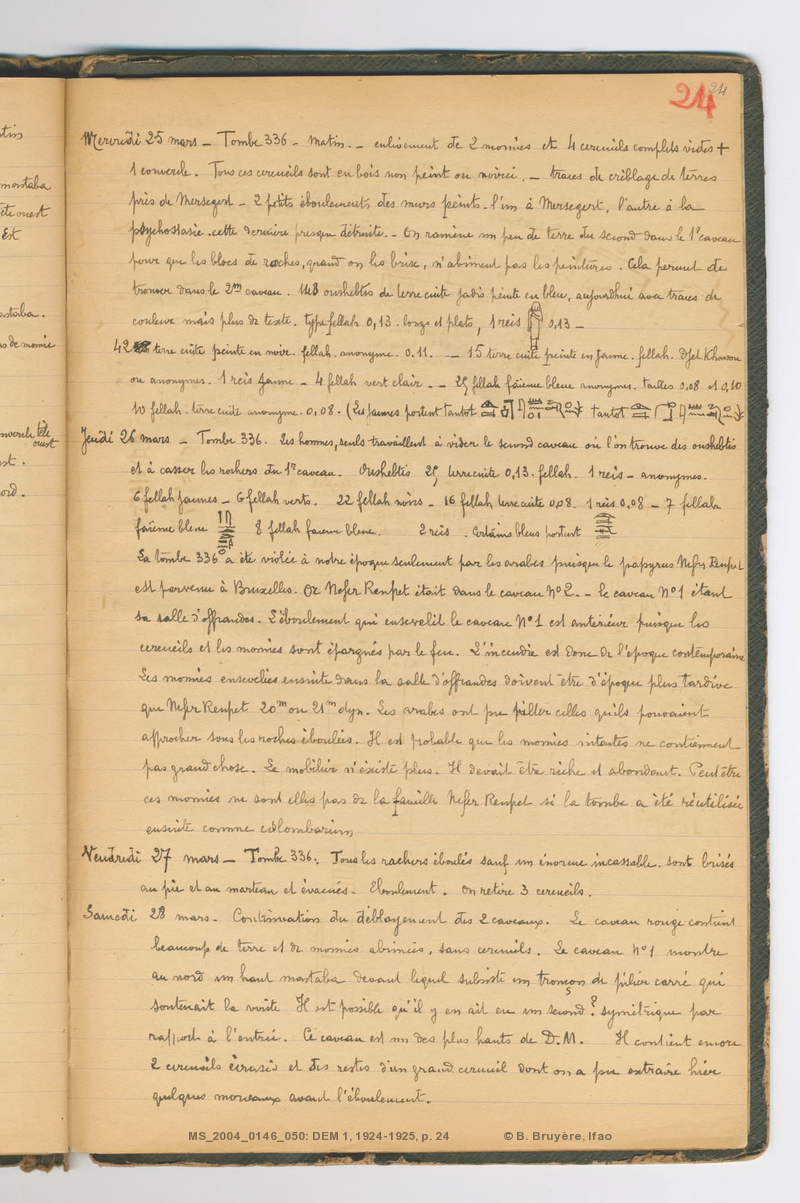 24
24
tin
mastaba
tête ouest
Est
mastaba.
de momie
couvercle, tête
ouest
st.
ord.
Mercredi 25 mars – Tombe 336 – Matin. – enlèvement de 2 momies et 4 cercueils complets vides +
1 couvercle. Tous ces cercueils sont en bois non peint ou noirci. – traces de criblage de terres
près de Mersegert – 2 petits éboulements des murs peints. l'un à Mersegert, l'autre à la
psychostasie. cette dernière presque détruite. – On ramène un peu de terre du second dans le 1er caveau
pour que les blocs de roches, quand on les brise, n'abiment pas les peintures. Cela permet de
trouver dans le 2me caveau. 148 oushebtis de terre cuite jadis peinte en bleu, aujourd'hui avec traces de
couleur mais plus de texte. type fellah 0,13. longs et plats, 1 reis 0,13 –
42 terre cuite peinte en noir. fellah. anonyme. 0.11. – 15 terre cuite peinte en jaune. fellah. Djet Khonsou
ou anonymes. 1 reis jaune – 4 fellah vert clair. – 25 fellah faïence bleue anonymes. tailles 0,08 et 0,10
10 fellah. terre cuite anonyme. 0,08. (Les jaunes portent tantôt tantôt
Jeudi 26 mars – Tombe 336. Les hommes, seuls travaillent à vider le second caveau où l'on trouve des oushebtis
et à casser les rochers du 1er caveau. Oushebtis 25 terre cuite 0,13. fellah. 1 reis – anonymes.
6 fellah jaunes – 6 fellah verts. 22 fellah noirs – 16 fellah terre cuite 0,08. 1 reis 0,08 – 7 fellah
faïence bleue 8 fellah faïence bleue. 2 reis. Certains bleus portent
La tombe 336 a été violée à notre époque seulement par les arabes puisque le papyrus Nefer Renpet
est parvenu à Bruxelles. Or Nefer Renpet était dans le caveau N° 2. – le caveau N° 1 étant
sa salle d'offrandes. L'éboulement qui ensevelit le caveau N° 1 est antérieur puisque les
cercueils et les momies sont épargnés par le feu. L'incendie est donc de l'époque contemporaine
Les momies ensevelies ensuite dans la salle d'offrandes doivent être d'époque plus tardive
que Nefer Renpet 20me ou 21me dyn. Les arabes ont pu piller celles qu'ils pouvaient
approcher sous les roches éboulées. Il est probable que les momies intactes ne contiennent
pas grand chose. Le mobilier n'existe plus. Il devait être riche et abondant. Peut être
ces momies ne sont elles pas de la famille Nefer Renpet si la tombe a été réutilisée
ensuite comme colombarium
Vendredi 27 mars – Tombe 336: Tous les rochers éboulés sauf un énorme incassable. sont brisés
au pic et au marteau et évacués – Eboulement. On retire 3 cercueils.
Samedi 28 mars – Continuation du déblayement des 2 caveaux. Le caveau rouge contient
beaucoup de terre et de momies abimées, sans cercueils. Le caveau N° 1 montre
au nord un haut mastaba devant lequel subsiste un tronçon de pilier carré qui
soutenait la voûte Il est possible qu'il y en ait eu un second? symétrique par
rapport à l'entrée. Ce caveau est un des plus hauts de D.M. Il contient encore
2 cercueils écrasés et des restes d'un grand cercueil dont on a pu extraire hier
quelques morceaux avant l'éboulement.
MS_2004_0146_050: DEM 1, 1924-1925, p. 24 © B. Bruyère, Ifao